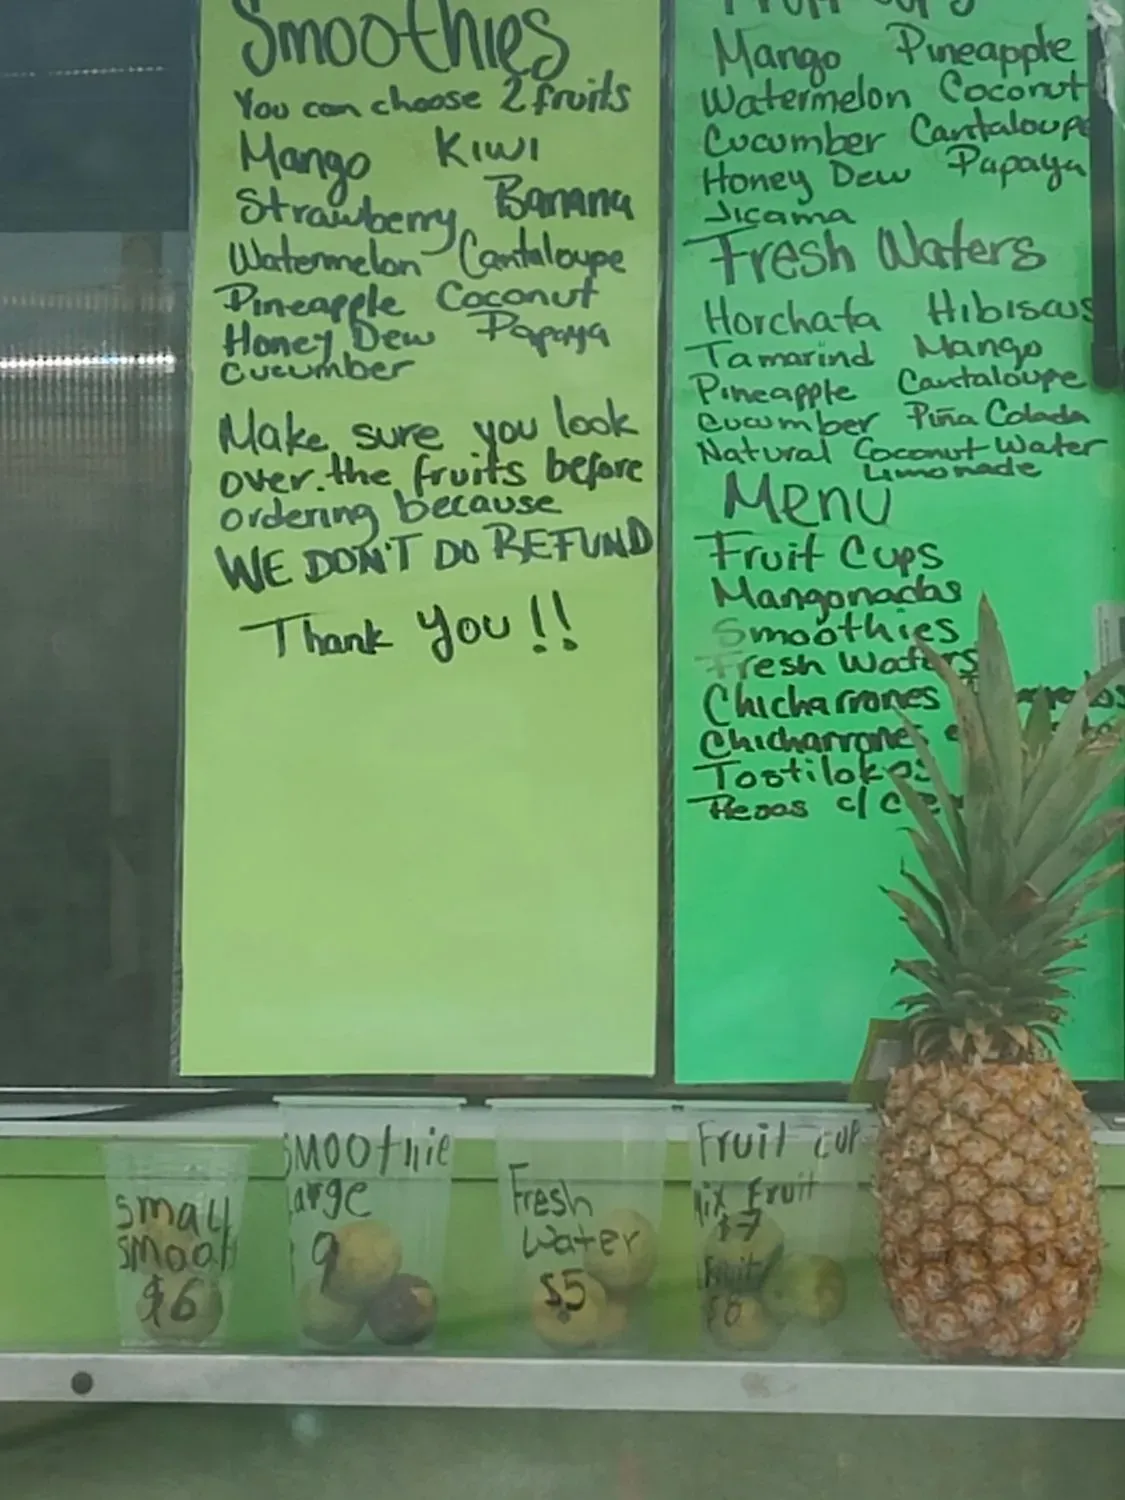 Smoothies
You can choose 2 fruits
Mango Kiwi
Strawberry Banana
Watermelon Cantaloupe
Pineapple Coconut
Honey Dew Papaya
Cucumber
Make sure you look
over the fruits before
ordering because
WE DON'T DO REFUND
Thank You!!
Mango Pineapple
Watermelon Coconut
Cucumber Cantaloupe
Honey Dew Papaya
Jicama
Fresh Waters
Horchata Hibiscus
Tamarind Mango
Pineapple Cantaloupe
Cucumber Piña Colada
Natural Coconut Water
Limonade
Menu
Fruit Cups
Mangonadas
Smoothies
Fresh Waters
Chicharrones
Chicharrones
Tostilokos
c/
Small
Smooth
$6
Smoothie
Large
9
Fresh
Water
$5
Fruit cup
Mix Fruit
$7
Fruit